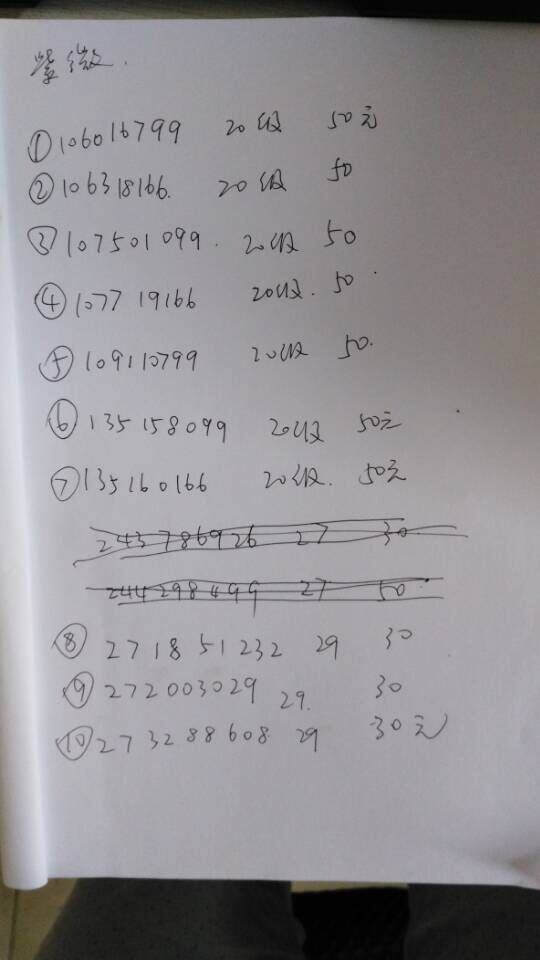 紫微.
①106016799 20级 50元
②106318166. 20级 50
③107501099. 20级 50
④107719166 20级. 50.
⑤109110799 20级 50.
⑥135158099 20级 50元
⑦135160166 20级. 50元
243786926 27 30
244298499 27 50
⑧271851232 29 30
⑨272003029 29. 30
⑩273288608 29 30元